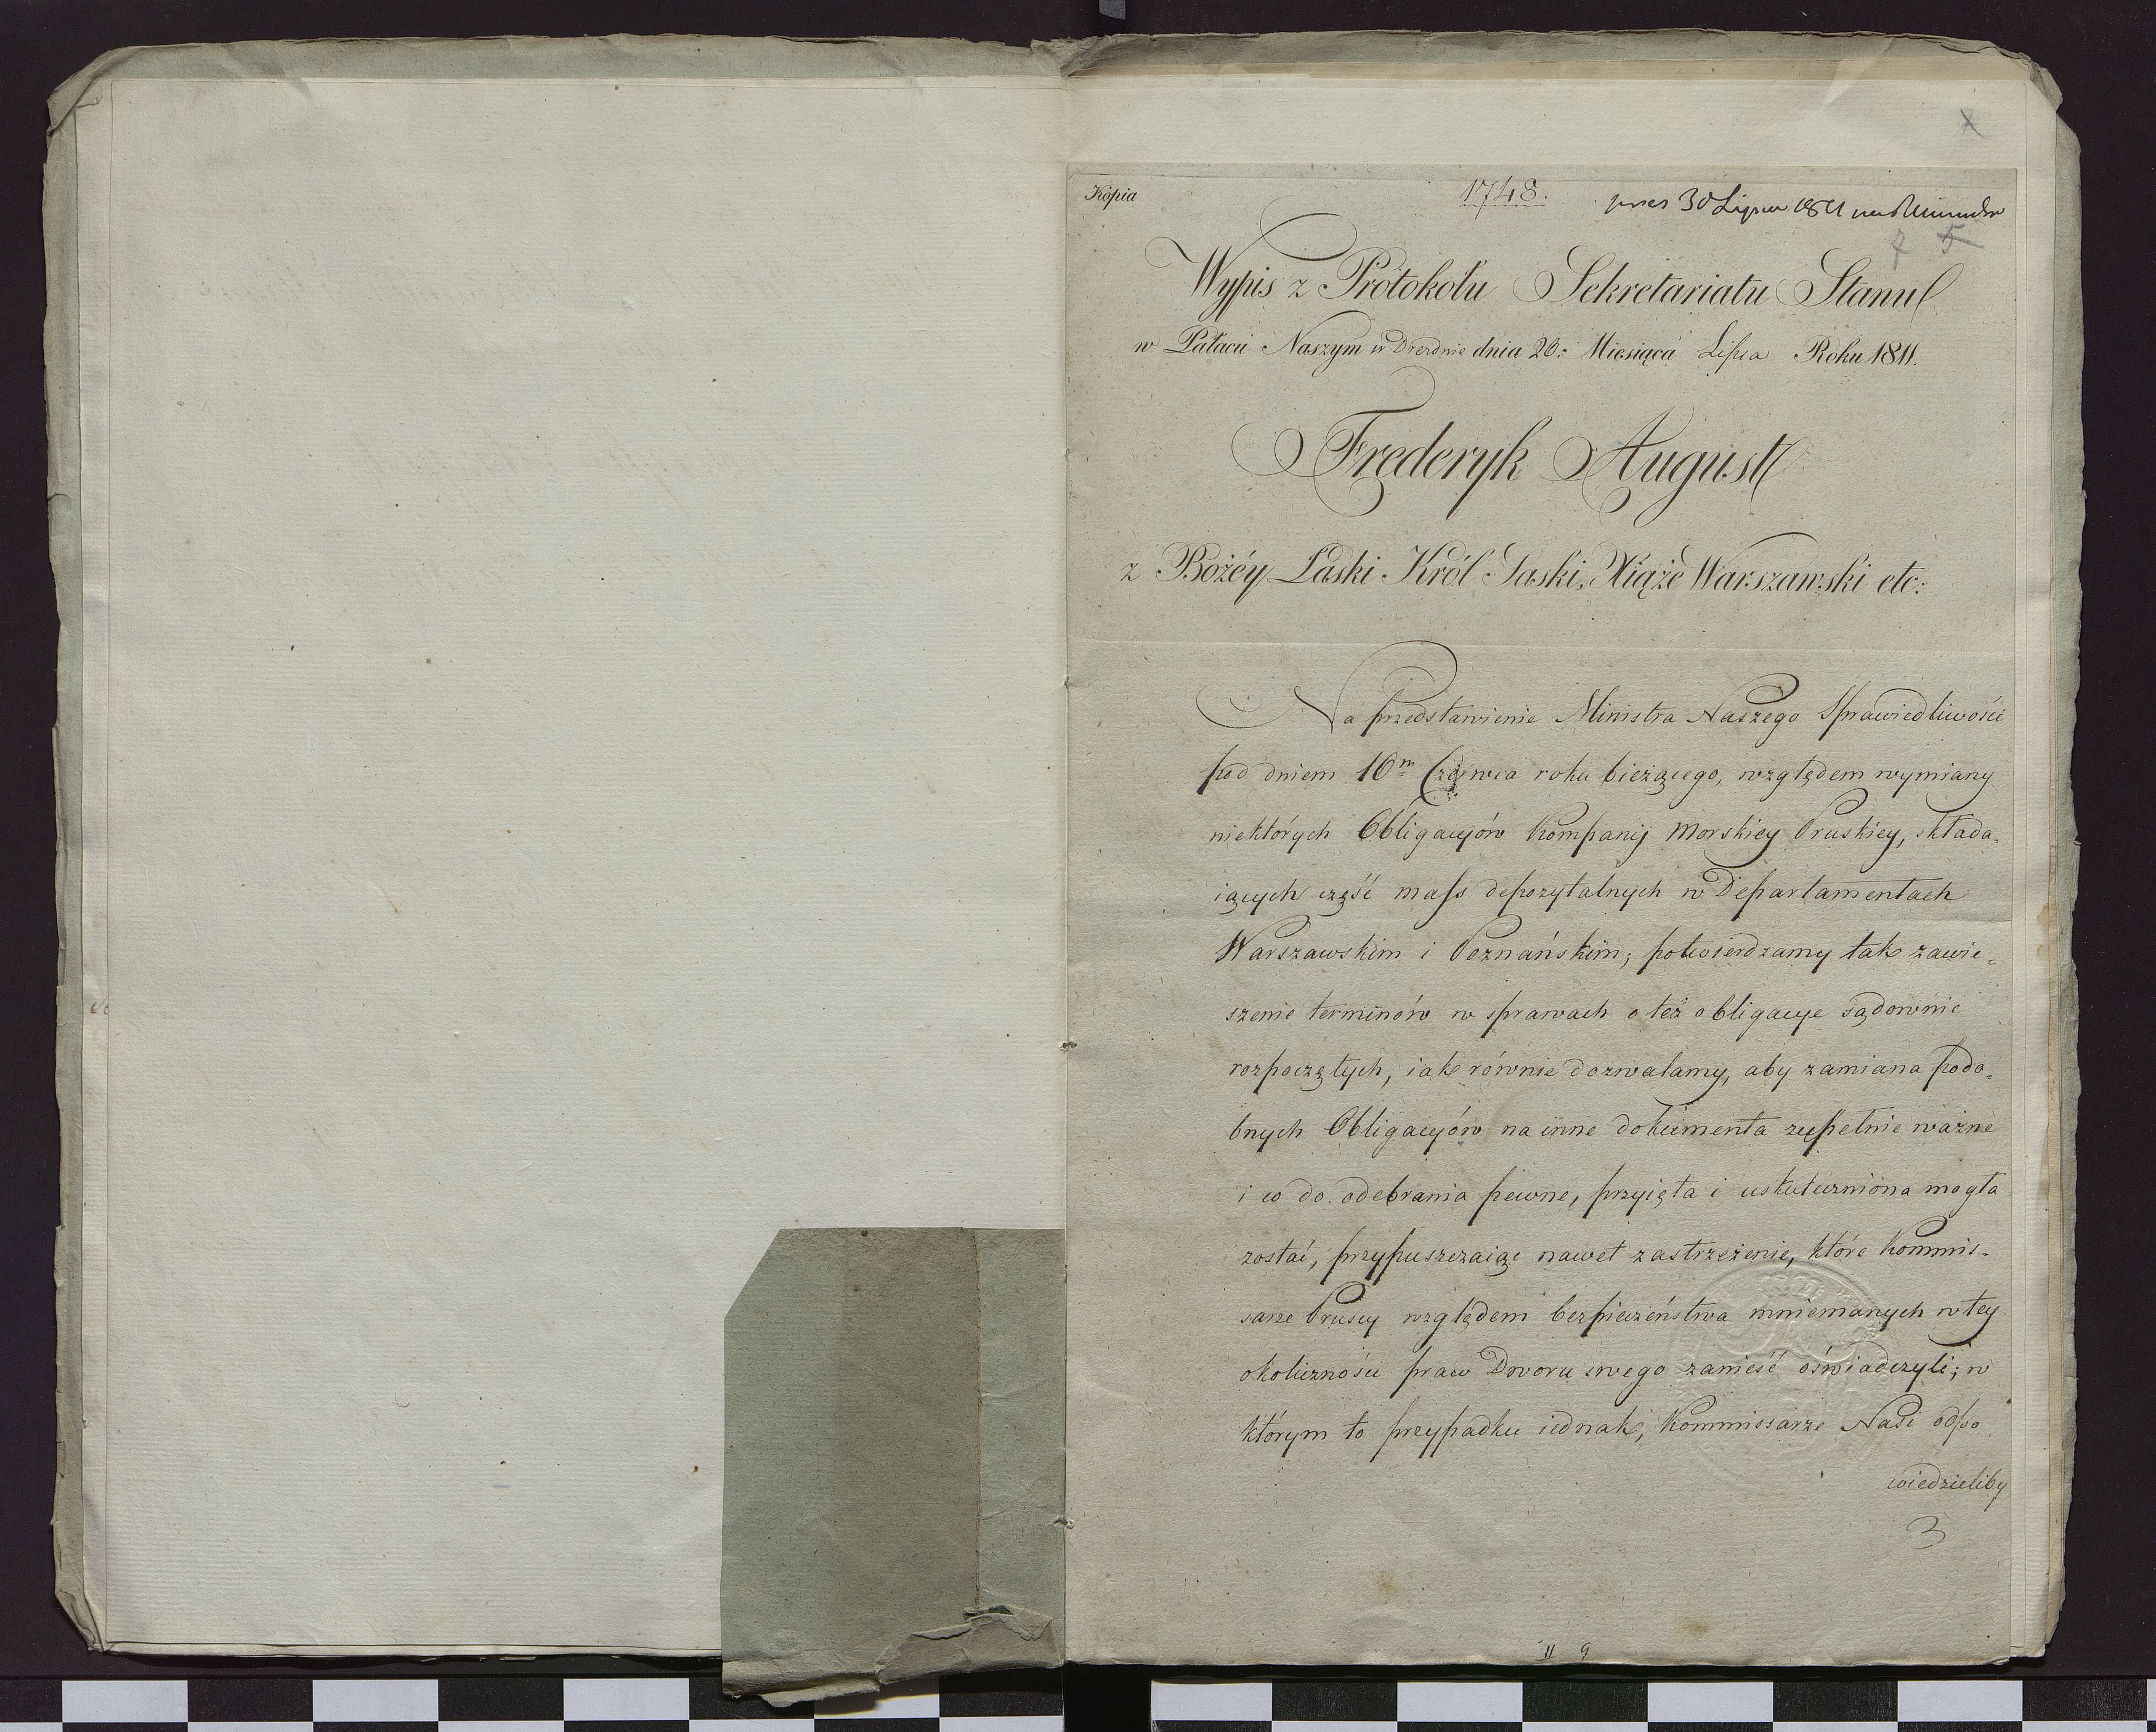 Kopia
1748.
pres 30 Lipca 1811
7 5
Wypis z Protokołu Sekretariatu Stanu
w Pałacu Naszym w Dreźnie dnia 20: Miesiąca Lipca Roku 1811.
Frederyk August
z Bożéy Łaski Król Saski, Xiąże Warszawski etc:
Na przedstawienie Ministra Naszego Sprawiedliwości
pod dniem 10m Czerwca roku bieżącego, względem wymiany
niektórych Obligacyjów Kompanij Morskiey Pruskiey, składa-
iących część mass depozytalnych w Departamentach
Warszawskim i Poznańskim; potwierdzamy tak zawie-
szenie terminów w sprawach o też obligacye sądownie
rozpoczętych, iak równie dozwalamy, aby zamiana podo-
bnych Obligacyjów na inne dokumenta zupełnie ważne
i co do odebrania pewne, przyięta i uskuteczniona mogła
zostać, przypuszczaiąc nawet zastrzeżenie, które Kommis-
sarze Pruscy względem bezpieczeństwa mniemanych w tey
okoliczności praw Dworu swego zanieść oświadczyli; w
którym to przypadku iednak, Kommissarze Nasi odpo
wiedzieliby
3
11 9